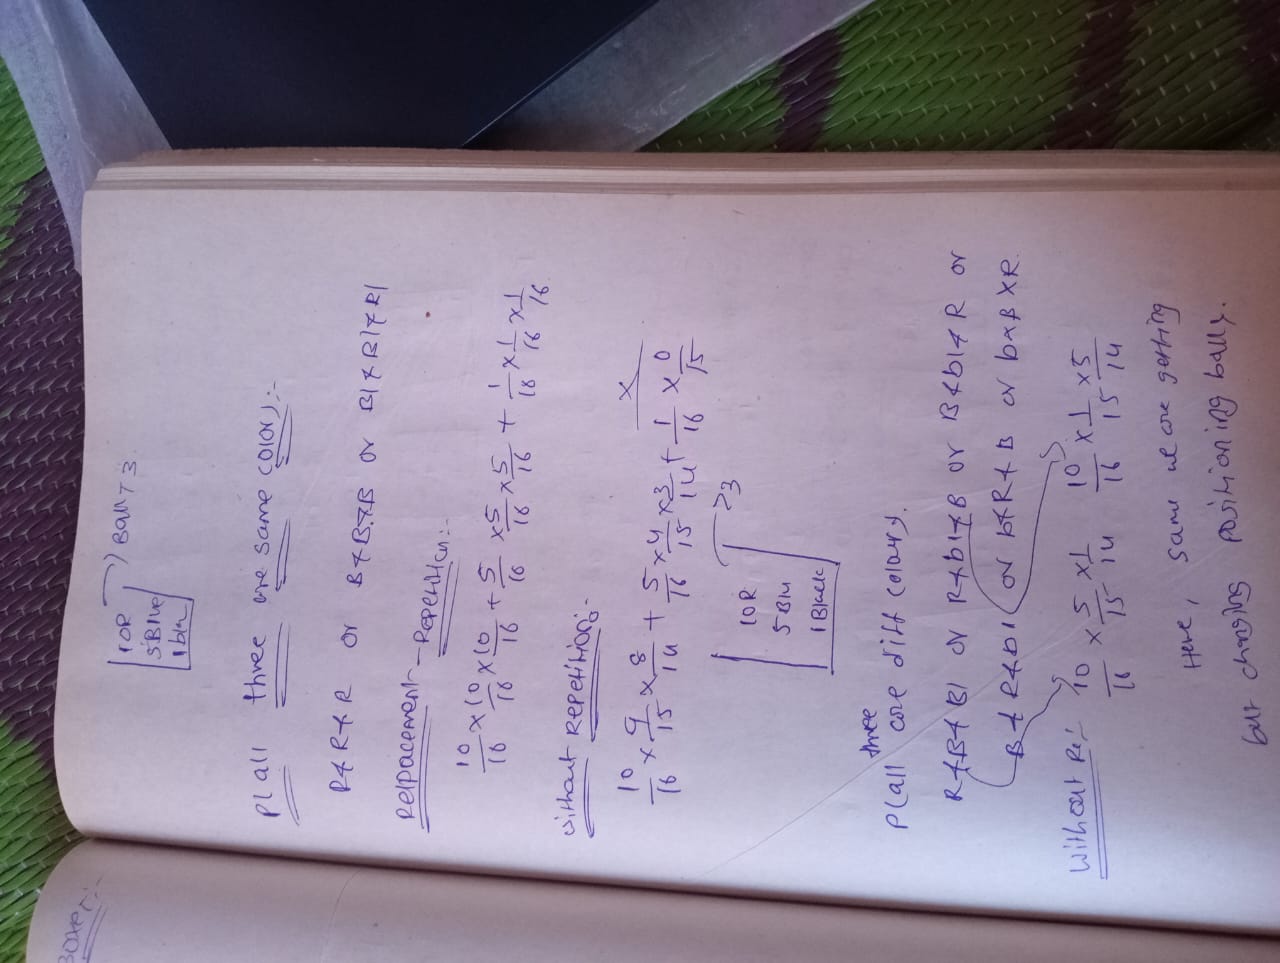 Boxes:-
10R
5Blue
1bla
Ball 73
P(all three are same color):-
R & R & R or B & B & B or Bl & Bl & Bl
Relpacement - Repetition:-
10/16 x 10/16 x 10/16 + 5/16 x 5/16 x 5/16 + 1/16 x 1/16 x 1/16
without Repetition:-
10/16 x 9/15 x 8/14 + 5/16 x 4/15 x 3/14 + 1/16 x 0/15 x
10R
5Blu
1Black
73
P(all three are diff colours.
R & B & Bl or R & bl & B or B & bl & R or
B & R & bl or b & R & B or b & B & R.
Without Re:- 10/16 x 5/15 x 1/14 10/16 x 1/15 x 5/14
Here, same we are getting
but changing positioning balls.